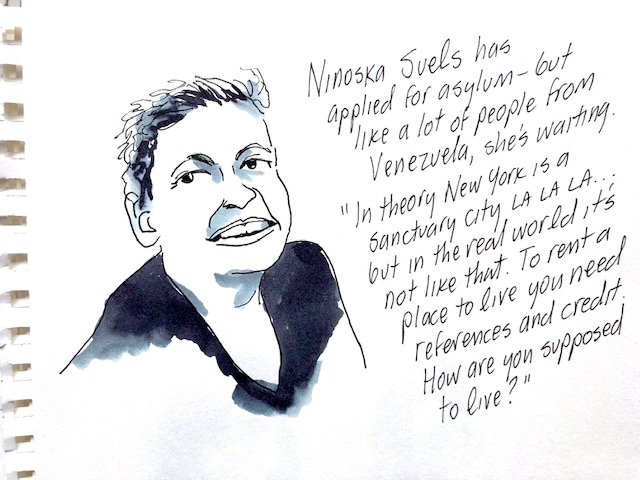 Ninoska Suels has
applied for asylum - but
like a lot of people from
Venezuela, she's waiting.
"In theory New York is a
sanctuary city LA LA LA...
but in the real world it's
not like that. To rent a
place to live you need
references and credit.
How are you supposed
to live?"